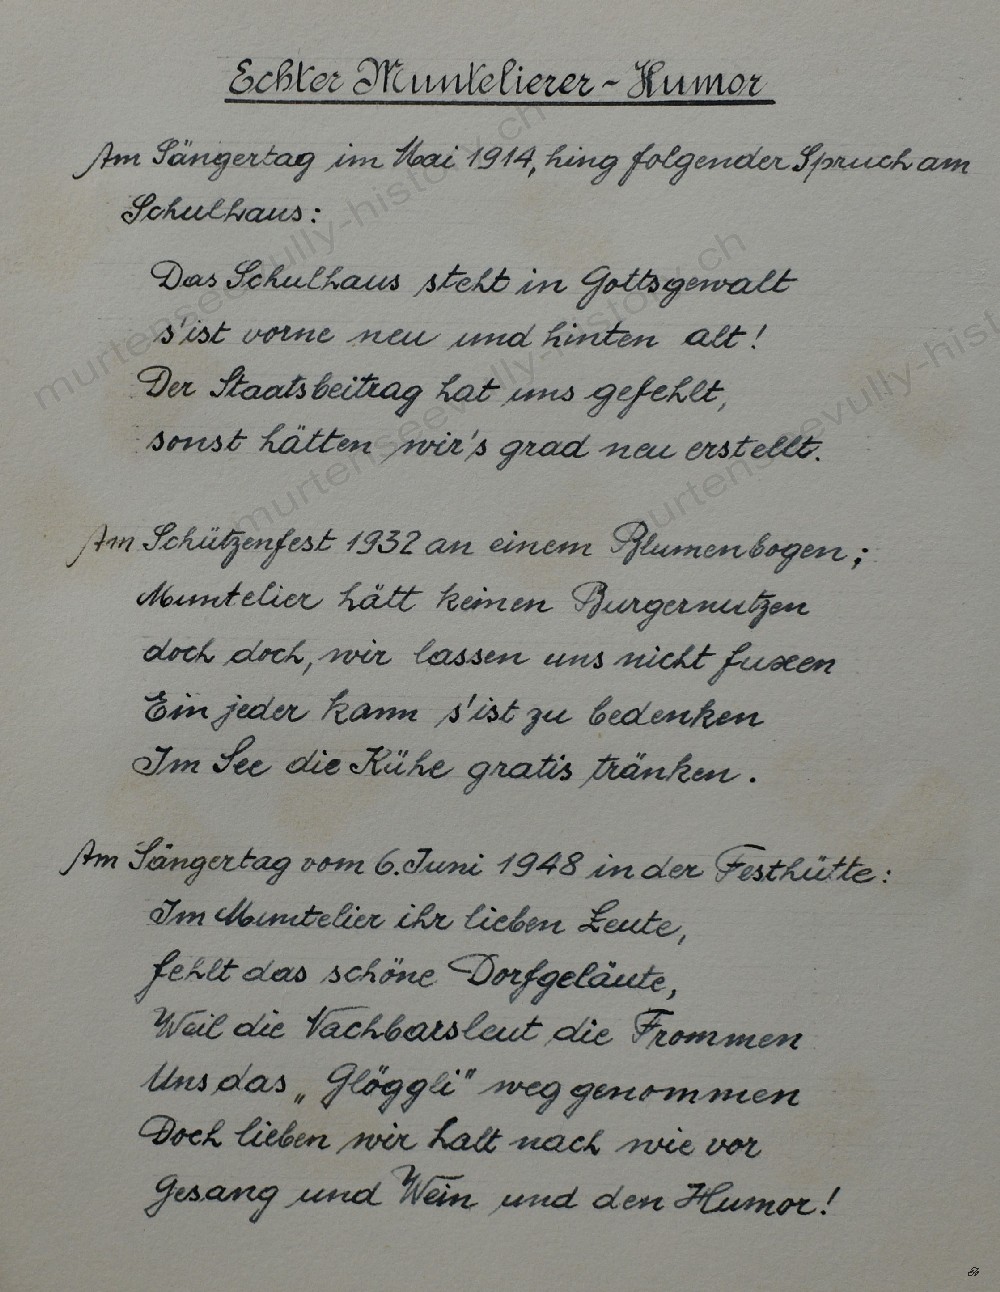 Echter Muntelierer-Humor
Am Sängertag im Mai 1914, hing folgender Spruch am
Schulhaus:
Das Schulhaus steht in Gottsgewalt
s'ist vorne neu und hinten alt!
Der Staatsbeitrag hat uns gefehlt,
sonst hätten wir's grad neu erstellt.
Am Schützenfest 1932 an einem Blumenbogen;
Muntelier hätt keinen Burgernutzen
doch doch, wir lassen uns nicht fuxen
Ein jeder kann s'ist zu bedenken
Im See die Kühe gratis tränken.
Am Sängertag vom 6. Juni 1948 in der Festhütte:
Im Muntelier ihr lieben Leute,
fehlt das schöne Dorfgeläute,
Weil die Nachbarsleut die Frommen
Uns das „Glöggli" weggenommen
Doch lieben wir halt nach wie vor
Gesang und Wein und den Humor!
murtenseevully-history.ch
murtenseevully-history.ch
murtenseevully-hist